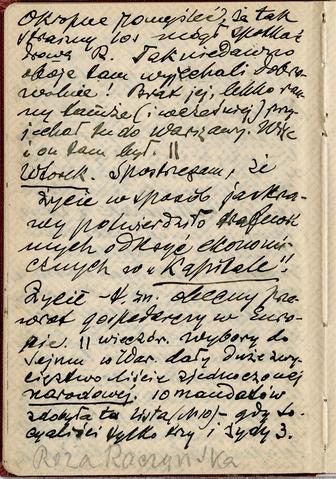 Okropne pomyśleć, że tak
straszny los mógł spotkać
R. Tak niedawno
oboje tam wyjechali dobro-
wolnie! Brat jej, lekko ran-
ny także (i wcześniej) przy-
jechał tu do Warszawy. Więc
i on tam był. ||
Wtorek. Spostrzegam, że
życie w sposób jaskra-
wy potwierdziło
mych odkryć ekonomi-
cznych w "Kapitale"!
Życie - t. zn. obecny prze-
wrót gospodarczy w Euro-
pie. || wieczór. wybory do
Sejmu w War. dały duże zwy-
cięstwo liście zjednoczonej
narodowej. 10 mandatów
zdobyła ta lista /N10/ - gdy so-
cyaliści tylko trzy i żydy 3.
Róża Raczyńska